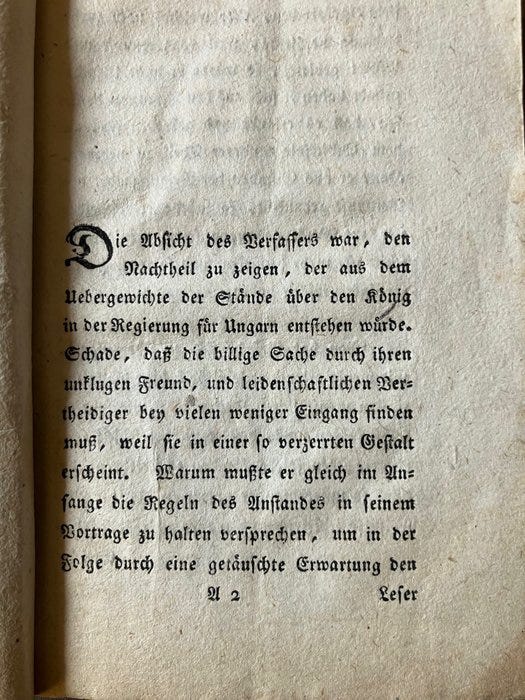 Die Absicht des Verfassers war, den
Nachtheil zu zeigen, der aus dem
Uebergewichte der Stände über den König
in der Regierung für Ungarn entstehen würde.
Schade, daß die billige Sache durch ihren
unklugen Freund, und leidenschaftlichen Ver=
theidiger bey vielen weniger Eingang finden
muß, weil sie in einer so verzerrten Gestalt
erscheint. Warum mußte er gleich im An=
fange die Regeln des Anstandes in seinem
Vortrage zu halten versprechen, um in der
Folge durch eine getäuschte Erwartung den
A 2 Leser